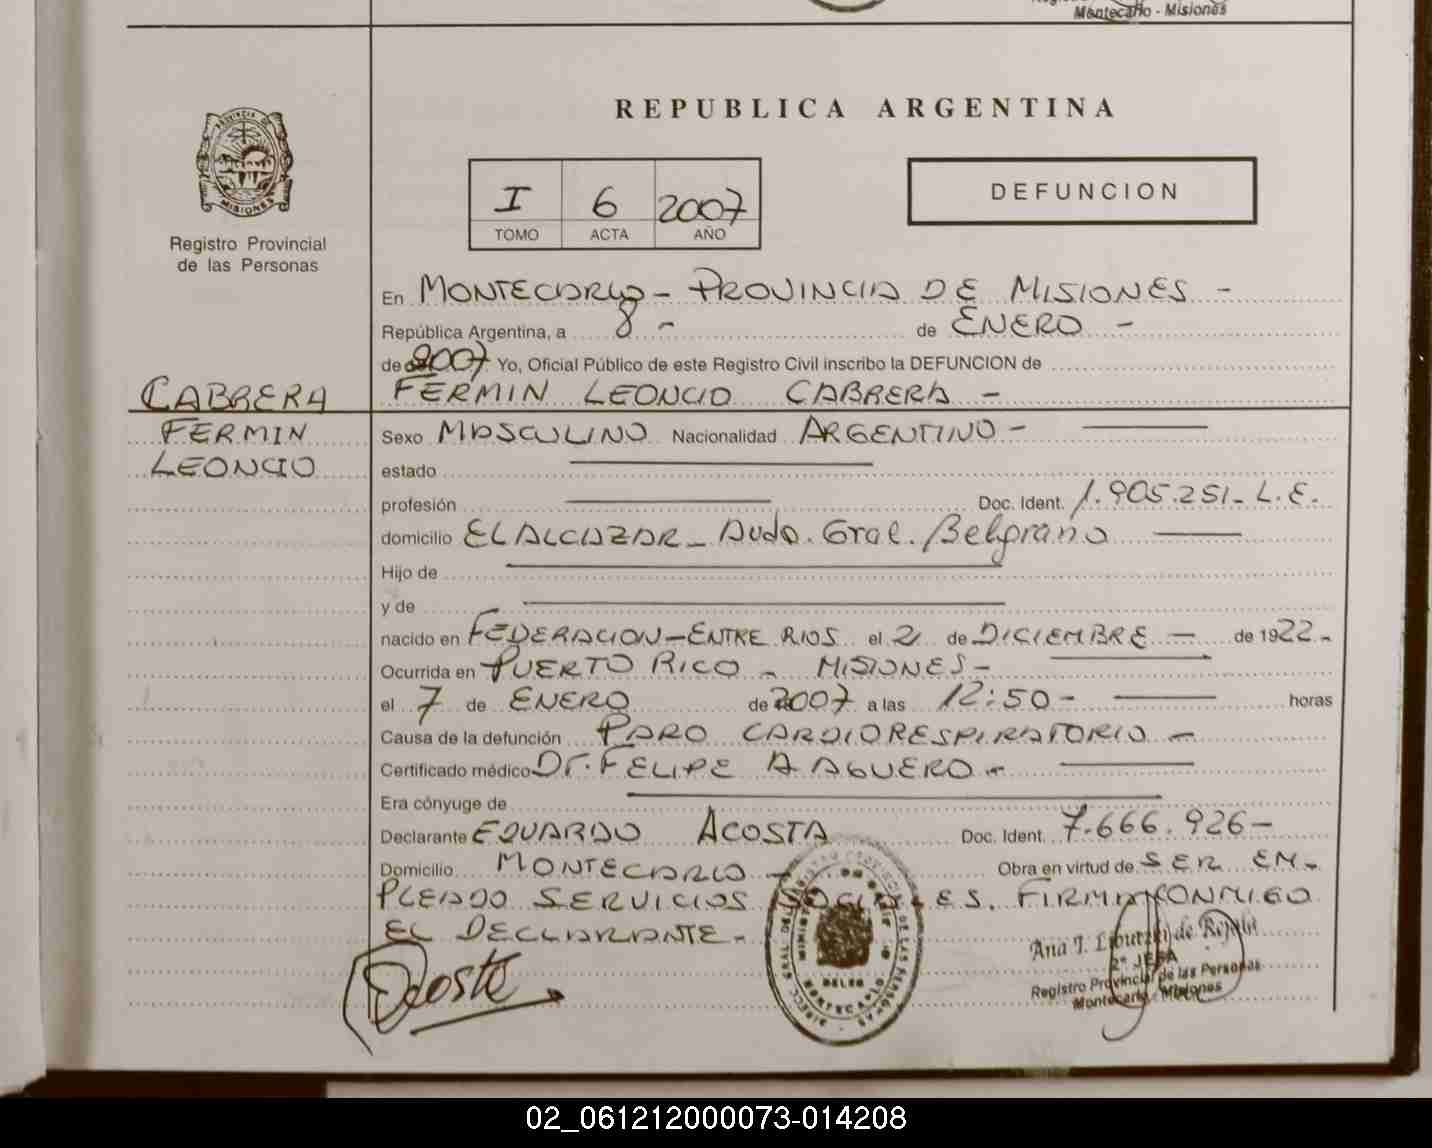 Montecarlo - Misiones
PROVINCIA DE
MISIONES
Registro Provincial
de las Personas
REPUBLICA ARGENTINA
I 6 2007
TOMO ACTA AÑO
DEFUNCION
En MONTECARLO - PROVINCIA DE MISIONES -
República Argentina, a 8 - de ENERO -
de 2007 Yo, Oficial Público de este Registro Civil inscribo la DEFUNCION de
CABRERA FERMIN LEONCIO CABRERA -
FERMIN
LEONCIO
Sexo MASCULINO Nacionalidad ARGENTINO -
estado
profesión Doc. Ident. 1.905.251- L.E.
domicilio EL ALCAZAR - Avda. Gral. Belgrano
Hijo de
y de
nacido en FEDERACION - ENTRE RIOS el 21 de DICIEMBRE - de 1922 -
Ocurrida en PUERTO RICO - MISIONES -
el 7 de ENERO de 2007 a las 12:50 - horas
Causa de la defunción PARO CARDIORESPIRATORIO -
Certificado médico Dr. FELIPE A AGUERO -
Era cónyuge de
Declarante EDUARDO ACOSTA Doc. Ident. 7.666.926 -
Domicilio MONTECARLO - Obra en virtud de SER EM-
PLEADO SERVICIOS SOCIALES. FIRMA CONMIGO
EL DECLARANTE -
Acosta
Ana I. de
2º JEFA
Registro Provincial de las Personas
Montecarlo - Misiones
02_061212000073-014208